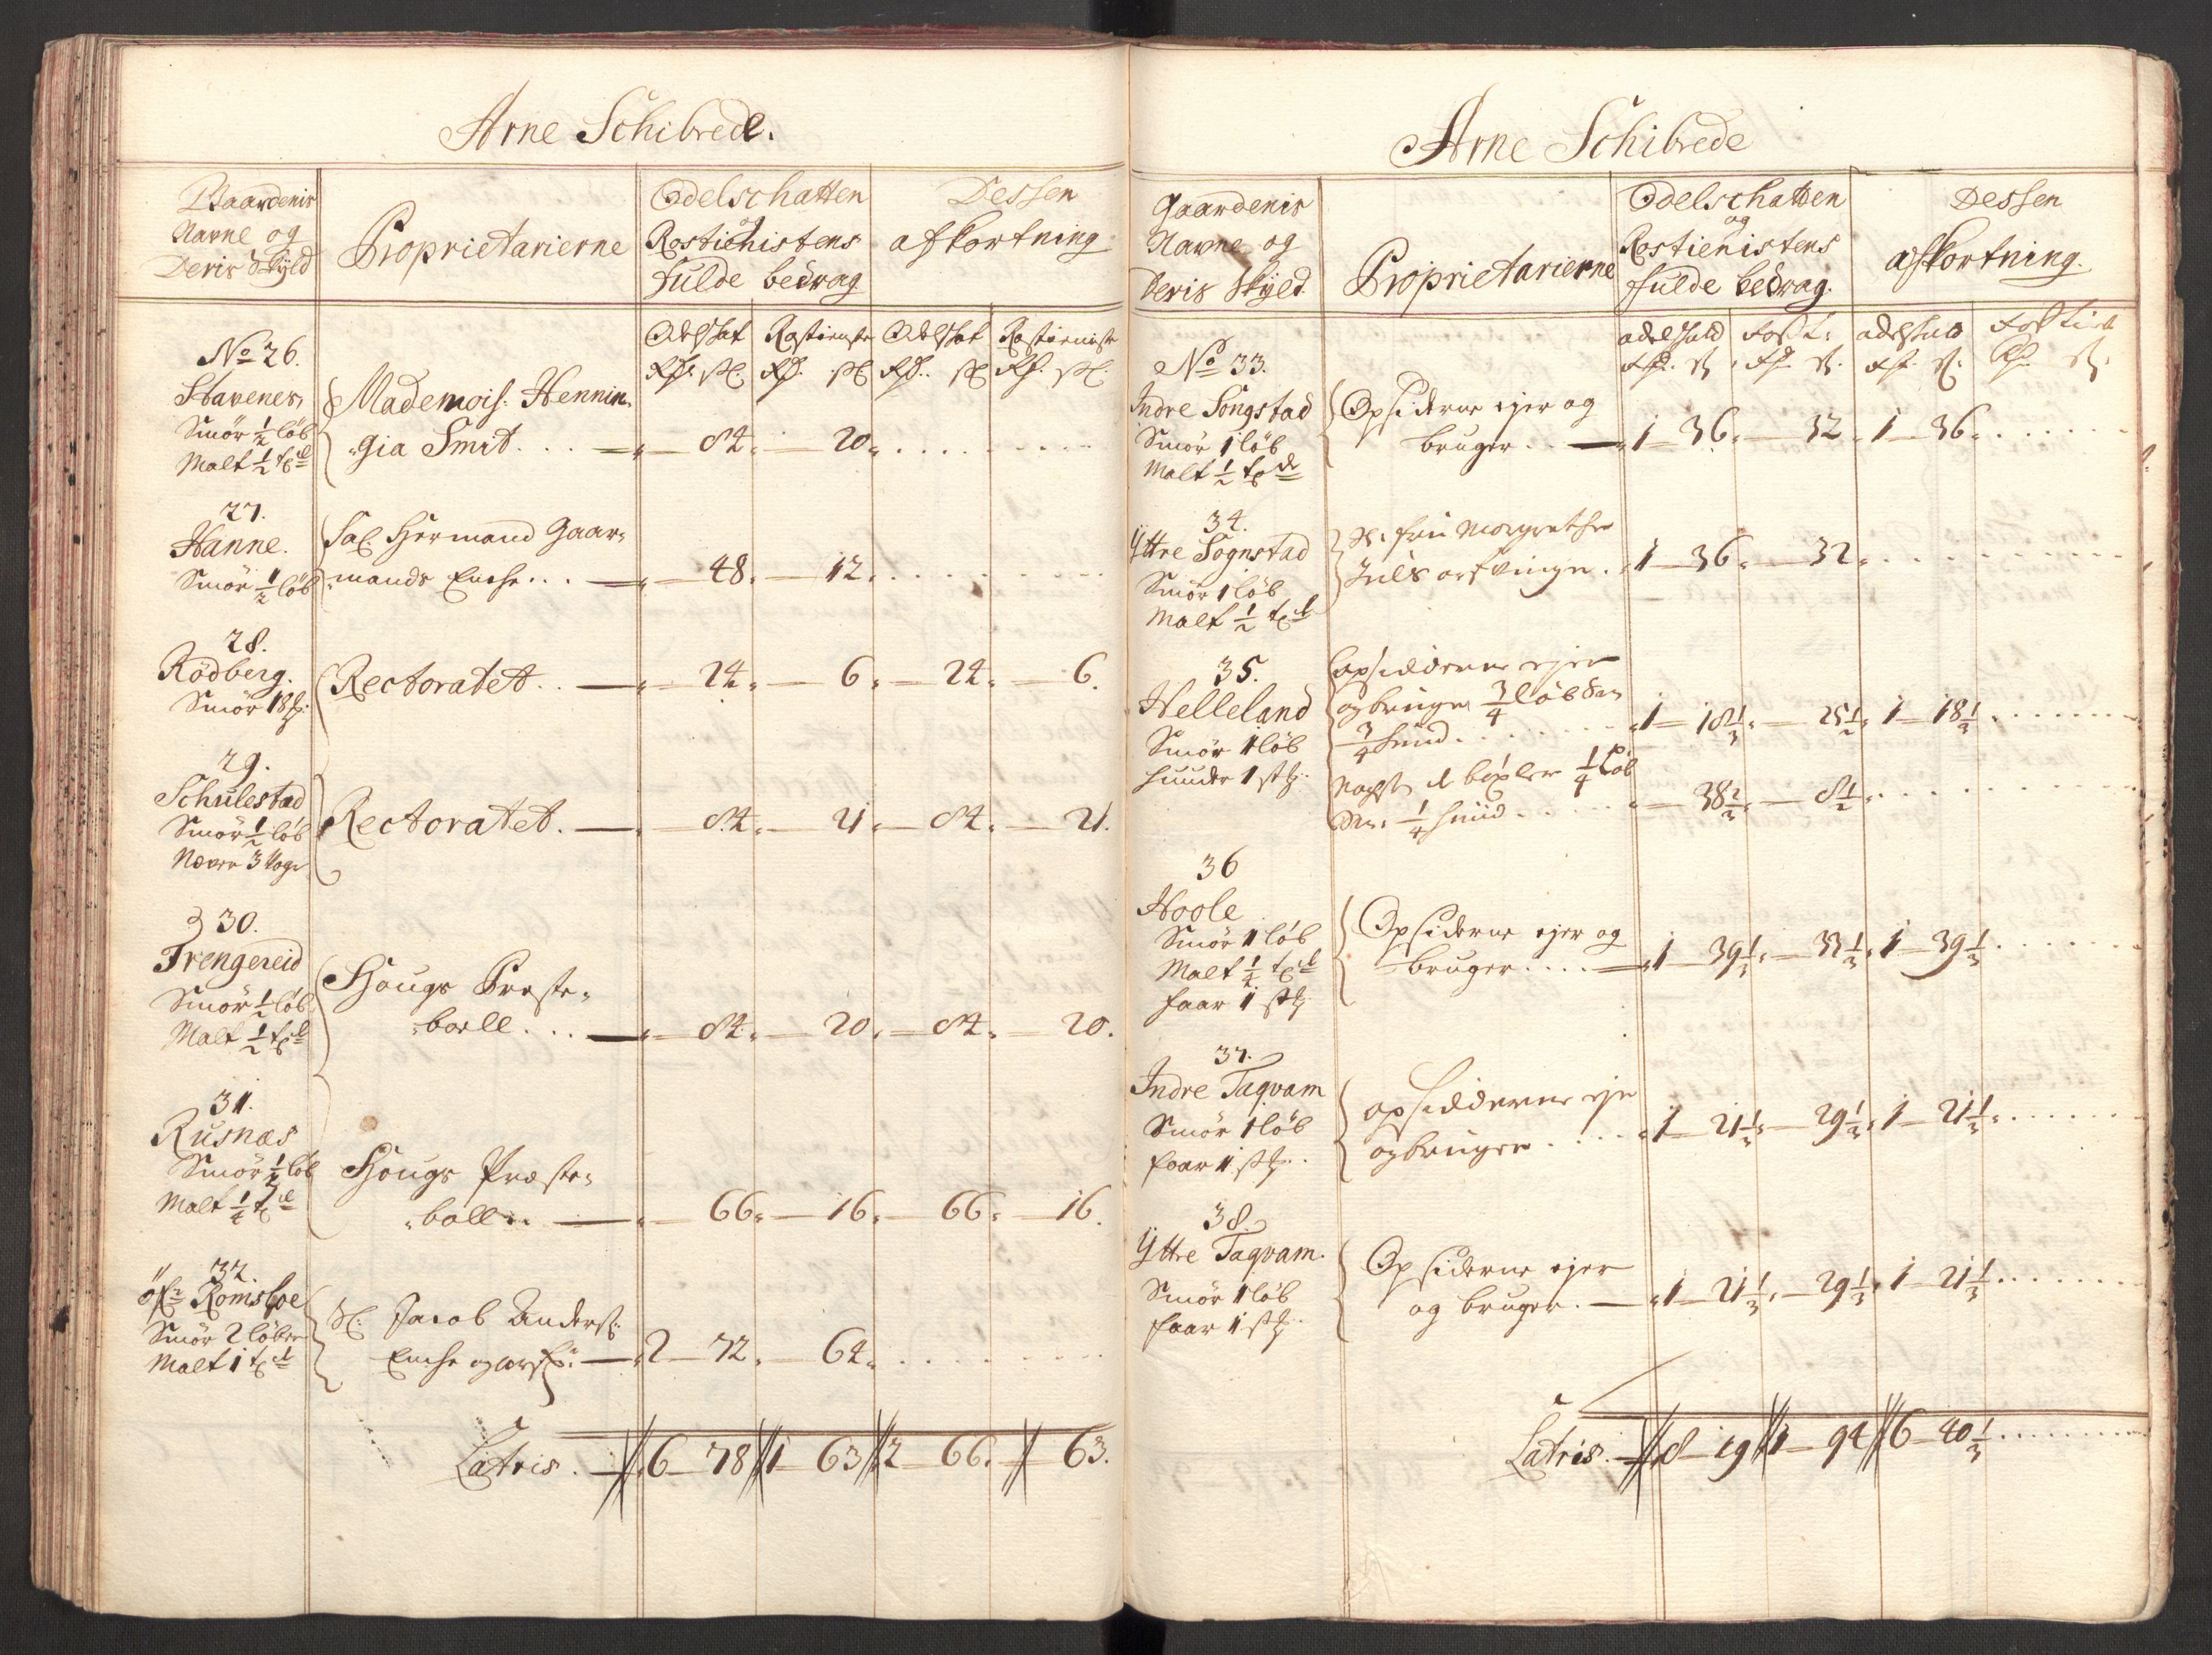 Arne Schibrede.
Gaardenis
Navne og
Deris Skyld
Proprietarierne
Odelschatten
og
Rostienistens
fulde bedrag
Dessen
afkortning
Odelskat Rostieniste Odelskat Rostieniste
Rd. sk. Rd. sk. Rd. sk. Rd. sk.
No 26.
Stavenes,
Smör 1/2 löb
Malt 1/2 td
Mademois: Hennin-
gia Smit . . . — 84. — 20. . . .
27.
Hanne.
Smör 1/2 löb
Sal. Hermand Gaar-
mands Enche . . . — 48. — 12. . . .
28.
Rödberg.
Smör 18 H.
Rectoratet . . — 24. — 6. — 24. — 6.
29.
Schulestad
Smör 1/2 löb
Næver 3 Vog
Rectoratet. — 84. — 21. — 84. — 21.
30.
Trengereid
Smör 1/2 löb
Malt 1/2 td
Hougs Preste-
boell . . . — 84. — 20. — 84. — 20.
31.
Rusnæs
Smör 1/2 löb
Malt 1/4 td
Hougs Præste-
boll . . — 66. — 16. — 66. — 16.
32.
Romsloe
Smör 2 löber
Malt 1 td
Sl: Jacob Anders:
Enche og arf: — 2 — 72. — 64. . . .
Latris . — 6 — 78 1 63 2 — 66. — 63.
Arne Schibrede
Gaardenis
Navne og
Deris Skyld
Proprietarierne
Odelschatten
og
Rostienistens
fulde bedrag.
Dessen
afkortning.
odelskat Rost: odelskat Rostien
No 33.
Indre Songstad
Smör 1 löb
Malt 1/2 td
Opsiderne ejer og
bruger . . — 1 — 36. — 32. 1 — 36. . . .
34.
Yttre Sognstad
Smör 1 löb
Malt 1/2 td
Sl. fru Margrethe
Juels arfvinger . 1 — 36. — 32. . . .
35.
Helleland
Smör 1 löb
huuder 1 stk.
Opsidderne ejer
og bruger 3/4 löb Sm
3/4 huud . . . 1 — 18 1/3. — 25 1/2. 1 — 18 1/3 . . .
1/4 löb
Sm. 1/4 huud . . . — 38 2/3. — 8 1/2. . . .
36
Hoole
Smör 1 löb
Malt 1/2 td
faar 1 stk
Opsiderne ejer og
bruger . . . . — 1 — 39 1/3. — 33 1/3. 1 — 39 1/3 . . .
37.
Indre Taqvam
Smör 1 löb
faar 1 stk.
Opsidderne eje
og bruger . . . . 1 — 21 1/3. — 29 1/3. 1 — 21 1/3. . . .
38.
Yttre Taqvam.
Smör 1 löb
faar 1 stk.
Opsiderne ejer
og bruger. — 1 — 21 1/3. — 29 1/3. 1 — 21 1/3 . . .
Latris. — 8 — 19 1 — 94 6 — 40 1/3 . . .